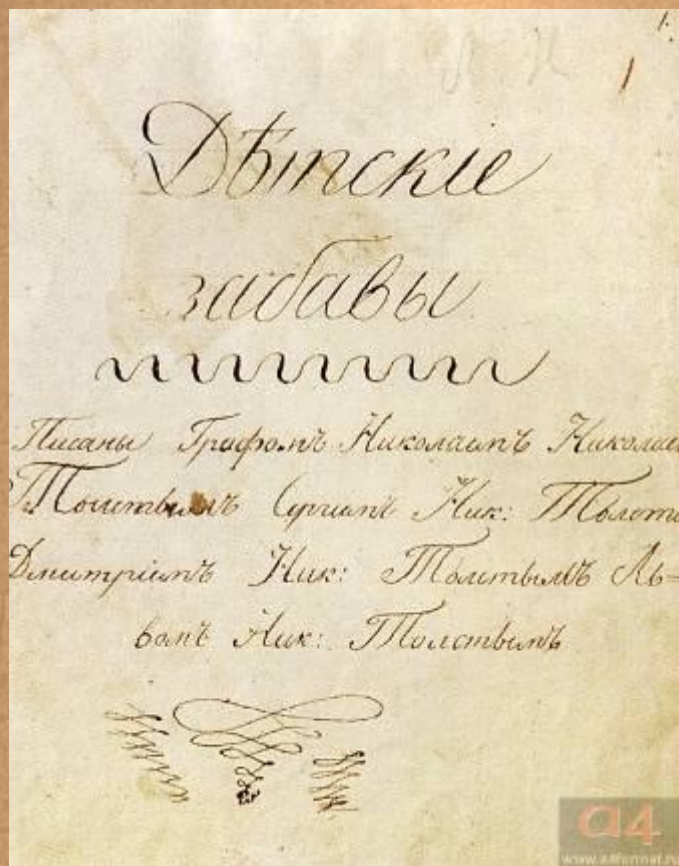 1.
Дѣтскіе
забавы
Писаны Графомъ Николаимъ Николаи
Толстымъ Сергіемъ Ник: Толсты
Дмитріемъ Ник: Толстымъ Ль=
вомъ Ник: Толстымъ
a4
www.a4format.ru